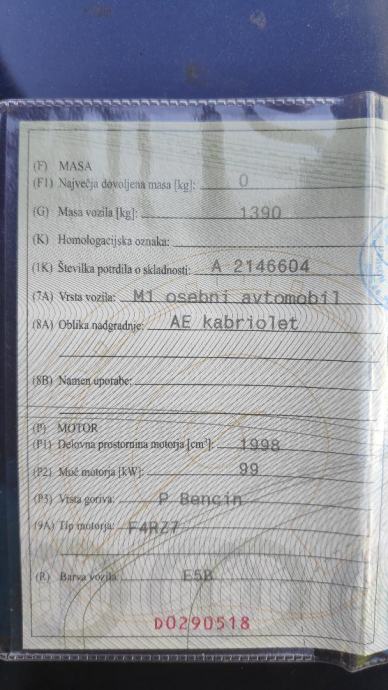 (F) MASA
(F1) Največja dovoljena masa [kg]: 0
(G) Masa vozila [kg]: 1390
(K) Homologacijska oznaka:
(1K) Številka potrdila o skladnosti: A 2146604
(7A) Vrsta vozila: M1 osebni avtomobil
(8A) Oblika nadgradnje: AE kabriolet
(8B) Namen uporabe:
(P) MOTOR
(P1) Delovna prostornina motorja [cm³]: 1998
(P2) Moč motorja [kW]: 99
(P3) Vrsta goriva: P Bencin
(9A) Tip motorja: F4RZ7
(R) Barva vozila: E5B
D0290518